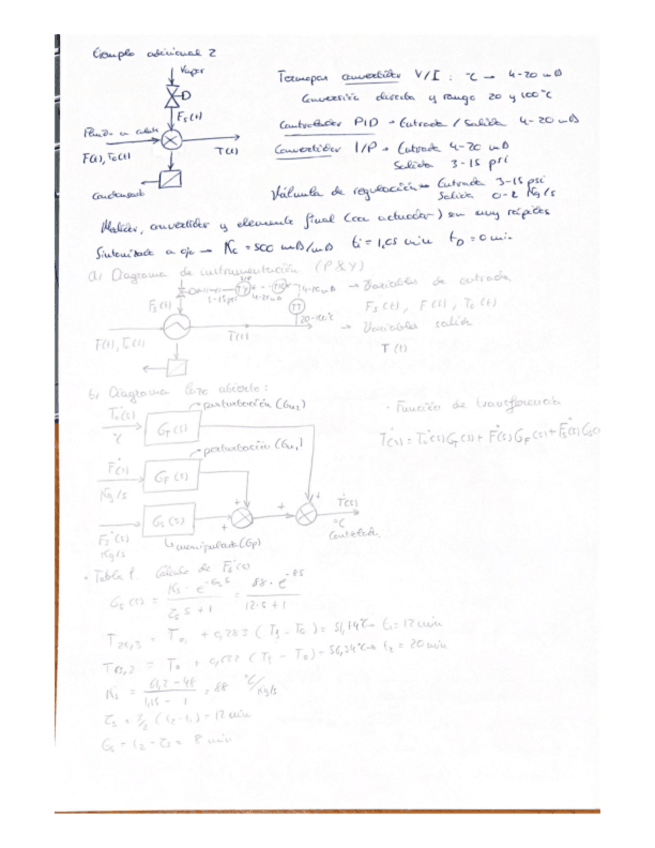 Ejemplo adicional 2
Vapor
Fs(t)
F(t), To(t)
T(t)
Condensado
Termopar convertidor V/I : °C → 4-20 mA
Conversión directa y rango 20 y 100°C
Controlador PID → Entrada / Salida 4-20 mA
Convertidor I/P → Entrada 4-20 mA
Salida 3-15 psi
Válvula de regulación → Entrada 3-15 psi
Salida 0-2 Kg/s
Medidor, convertidor y elemento final (con actuador) son muy rápidos
Kc = 500 mA/mA ti = 1,05 min tD = 0 min
a) Diagrama de instrumentación (P&I)
3-15 psi
4-20 mA
4-20 mA
TT
20-100°C
Fs(t)
F(t), To(t)
T(t)
→ Variables de entrada
Fs(t), F(t), To(t)
→ Variables salida
T(t)
b) Diagrama lazo abierto:
To*(s)
°C
GT(s)
perturbación (Gu2)
F*(s)
Kg/s
GF(s)
perturbación (Gu1)
Fs*(s)
Kg/s
Gs(s)
manipulada (Gp)
+
+
+
+
T*(s)
°C
Controlada
· Función de transferencia
T*(s) = To*(s)GT(s) + F*(s)GF(s) + Fs*(s)Gs(
· Tabla 1. Cálculo de
Gs(s) = Ks · e^-tos s / τs s + 1 = 88 · e^-8s / 12·s + 1
T28,3 = To + 0,283 (Tf - To) = 51,74°C → t1 = 12 min
T63,2 = To + 0,632 (Tf - To) = 56,34°C → t2 = 20 min
Ks = 61,2 - 48 / 1,15 - 1 = 88 °C/Kg/s
τs = 3/2 (t2 - t1) = 12 min
= t2 - τs = 8 min